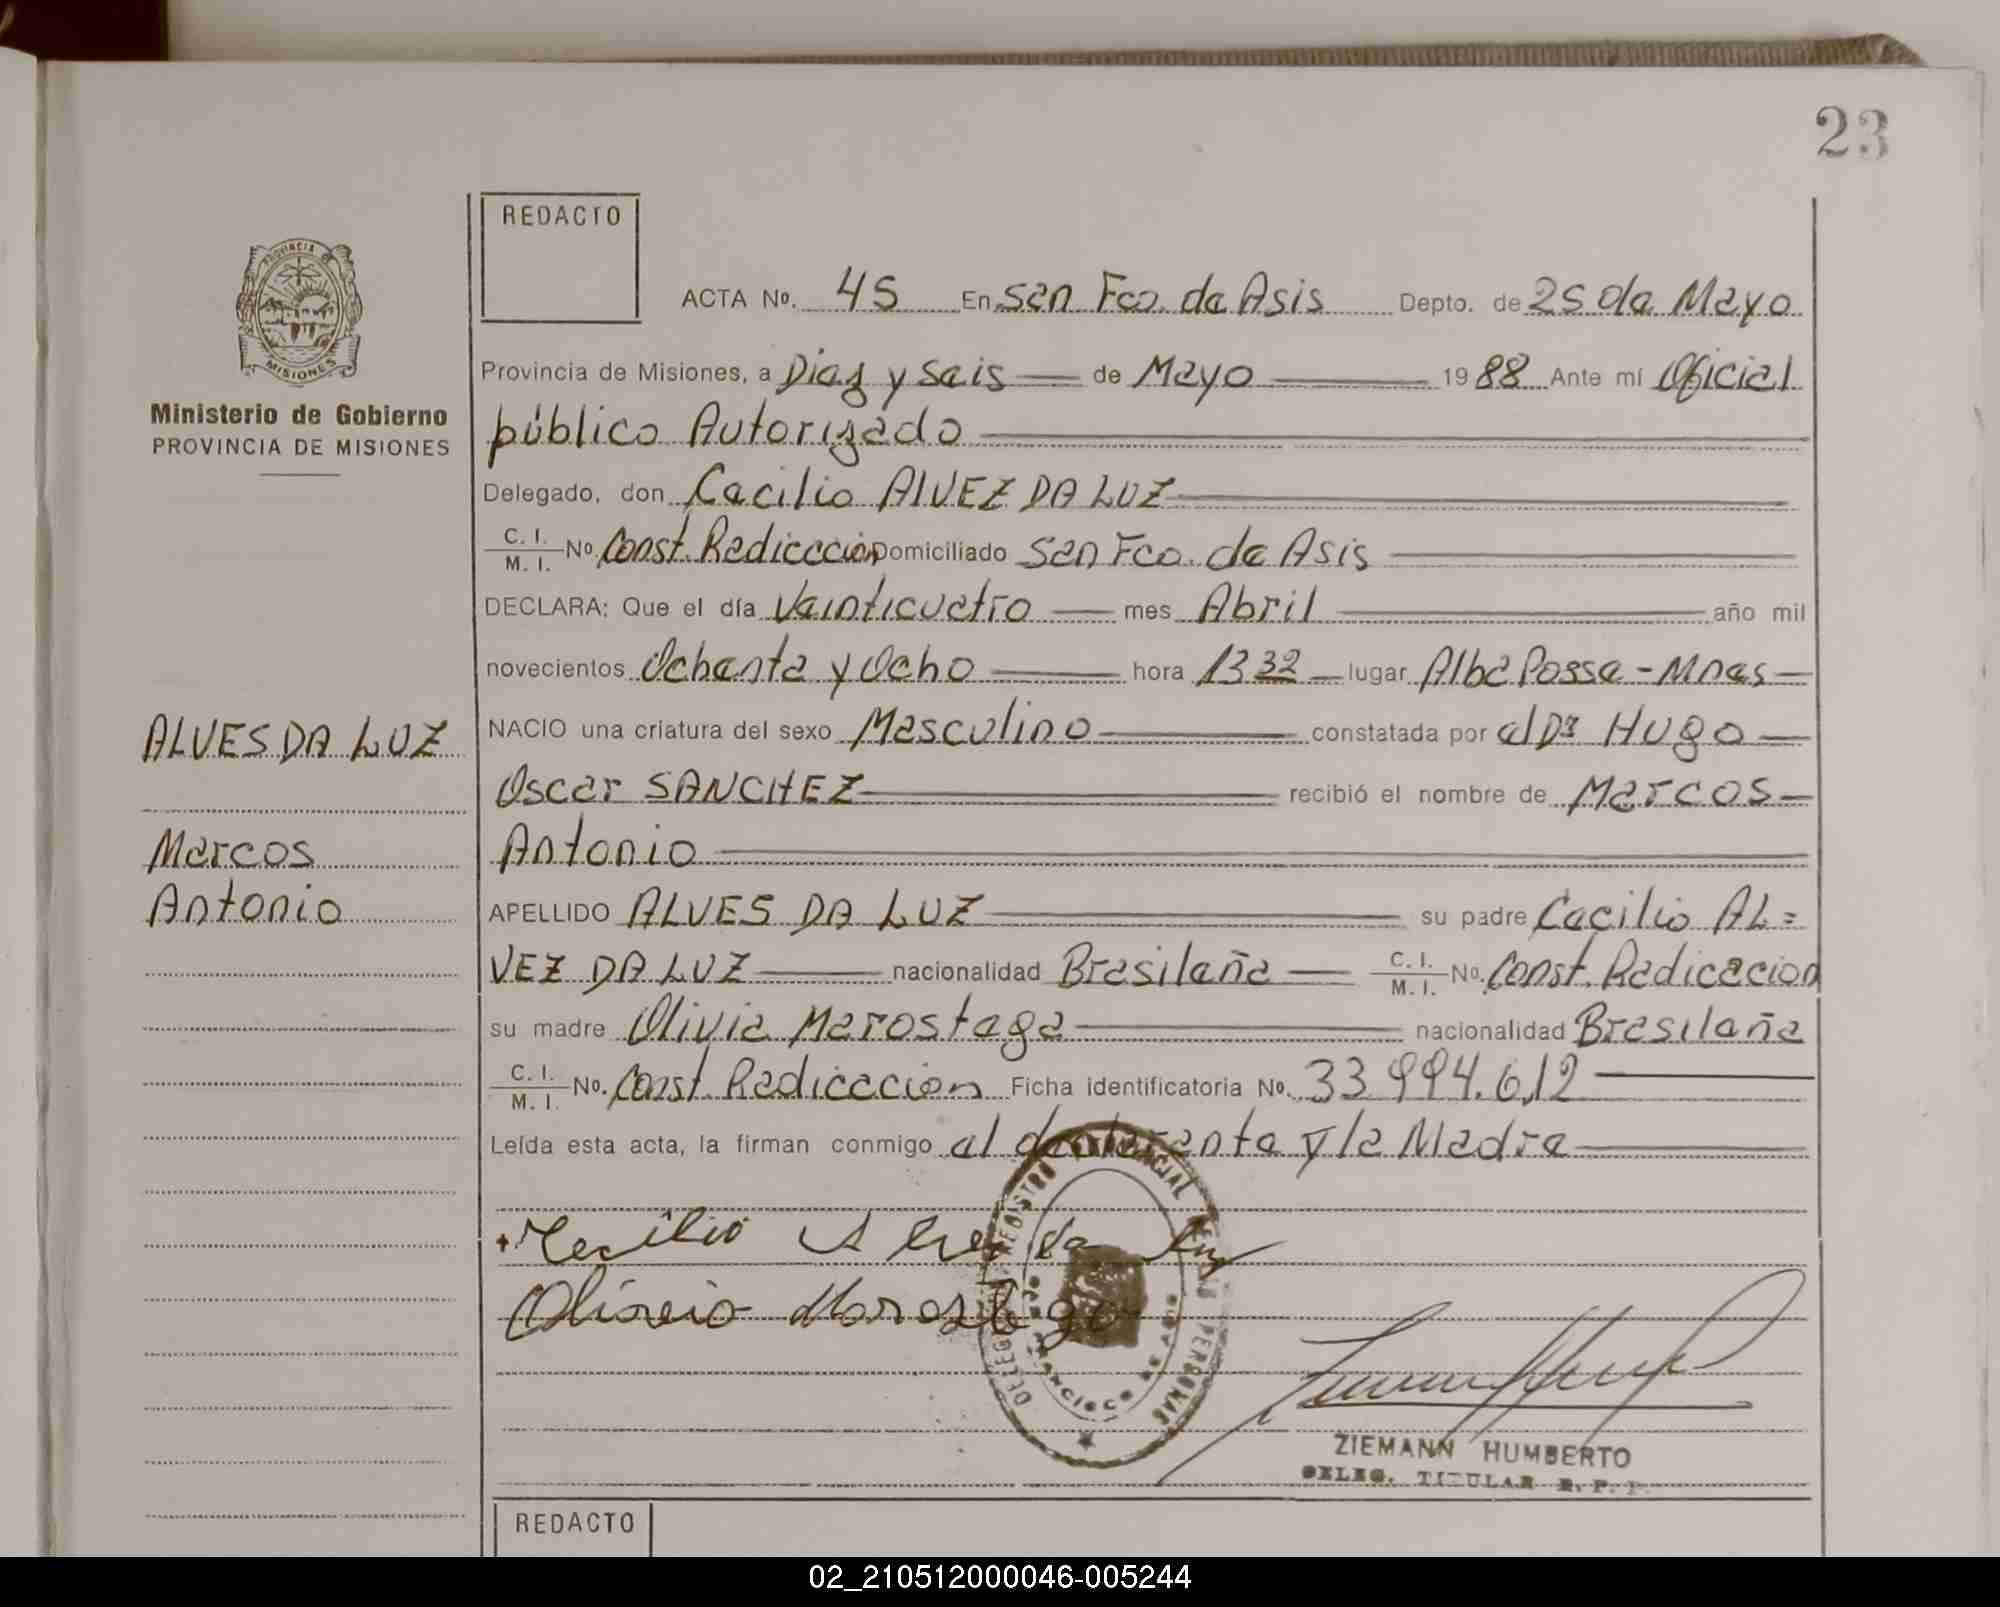 23
REDACTO
ACTA No. 45 En San Fco. de Asis Depto. de 25 de Mayo
Provincia de Misiones, a Diez y seis de Mayo 1988 Ante mí Oficial
público Autorizado
Ministerio de Gobierno
PROVINCIA DE MISIONES
Delegado, don Cecilio ALVEZ DA LUZ
C. I.
M. I. No. Const. Radicación Domiciliado San Fco. de Asis
DECLARA: Que el día Veinticuatro mes Abril año mil
novecientos Ochenta y Ocho hora 13 32 lugar Alba Posse - Mnes
NACIO una criatura del sexo Masculino constatada por el Dr Hugo
Oscar SANCHEZ recibió el nombre de Marcos
Antonio
ALVES DA LUZ
Marcos
Antonio
APELLIDO ALVES DA LUZ su padre Cecilio AL=
VEZ DA LUZ nacionalidad Brasileña C. I.
M. I. No. Const. Radicacion
su madre Olivia Marostega nacionalidad Brasileña
C. I.
M. I. No. Const. Radicacion Ficha identificatoria No. 33.994.612
Leída esta acta, la firman conmigo el declarante y la Madre
Cecilio Alves da Luz
Olivia Marostega
DELEG REGISTRO PROVINCIAL DE LAS PERSONAS
FRANCISCO DE ASIS
ZIEMANN HUMBERTO
DELEG. TITULAR R. P. P.
REDACTO
02_210512000046-005244